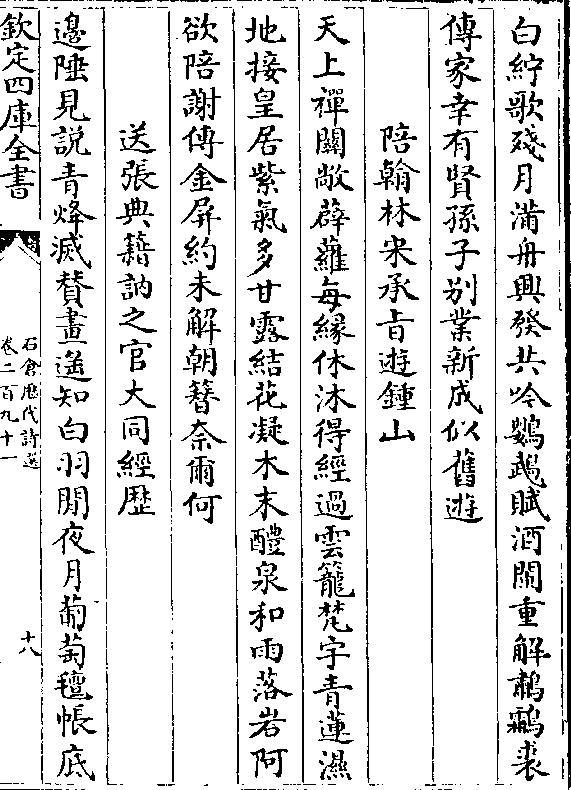 白紵歌殘月滿舟興發共吟鸚鵡賦酒闌重解鷫鸘裘
傳家幸有賢孫子别業新成似舊遊
陪翰林宋承旨遊鍾山
天上禪關敞薜蘿每緣休沐得經過雲籠梵宇青蓮濕
地接皇居紫氣多甘露結花凝木末醴泉和雨落岩阿
欲陪謝傅金屏約未解朝簪奈爾何
送張典籍訥之官大同經歴
邊陲見説青烽滅賛畫遥知白羽閒夜月葡萄氊帳底
欽定四庫全書
石倉歴代詩選
卷二百九十一
十八